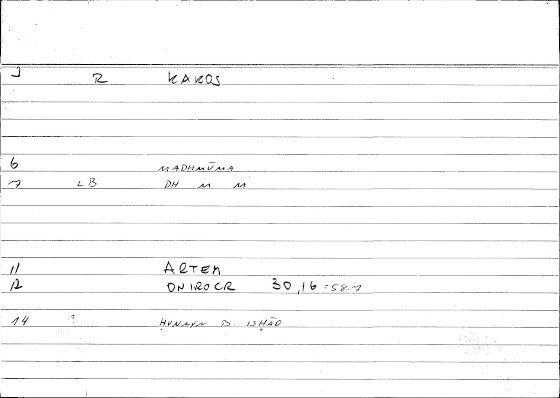 1 R KAKOS
6 MADHMŪMA
7 LB DH M M
11 ARTEM
12 ONIROCR 30,16 = 58.7
14 ? ḤUNAYN B. ISḤĀQ